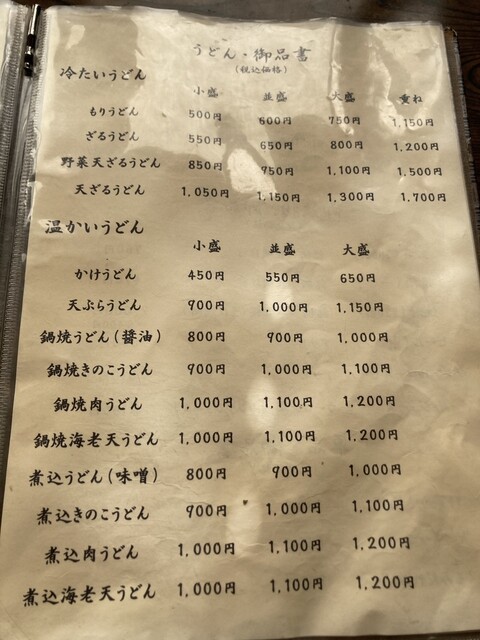 うどん・御品書
(税込価格)
冷たいうどん
小盛 並盛 大盛 重ね
もりうどん 500円 600円 750円 1,150円
ざるうどん 550円 650円 800円 1,200円
野菜天ざるうどん 850円 950円 1,100円 1,500円
天ざるうどん 1,050円 1,150円 1,300円 1,700円
温かいうどん
小盛 並盛 大盛
かけうどん 450円 550円 650円
天ぷらうどん 900円 1,000円 1,150円
鍋焼うどん(醤油) 800円 900円 1,000円
鍋焼きのこうどん 900円 1,000円 1,100円
鍋焼肉うどん 1,000円 1,100円 1,200円
鍋焼海老天うどん 1,000円 1,100円 1,200円
煮込うどん(味噌) 800円 900円 1,000円
煮込きのこうどん 900円 1,000円 1,100円
煮込肉うどん 1,000円 1,100円 1,200円
煮込海老天うどん 1,000円 1,100円 1,200円